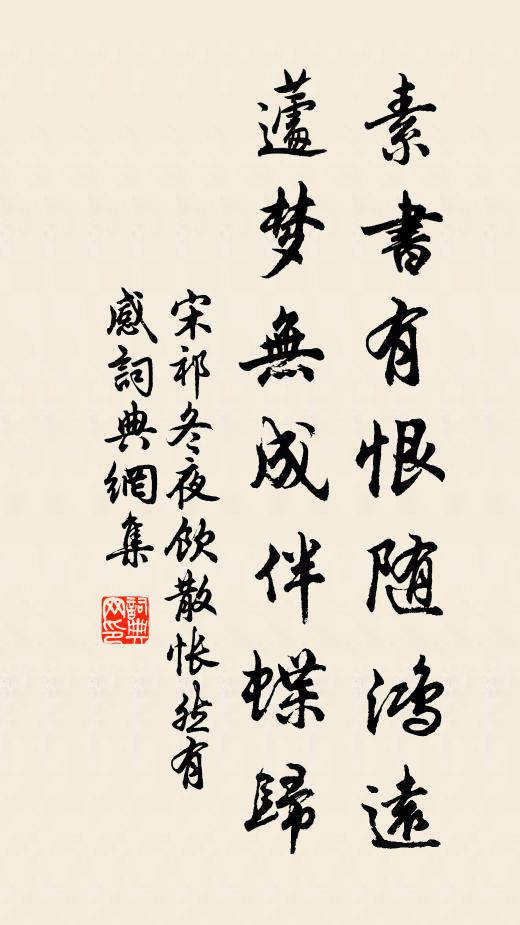 素書有恨随鴻遠
蘧梦無成伴蝶歸
宋祁冬夜飲散悵然有
感詞典網集
詞典
网印